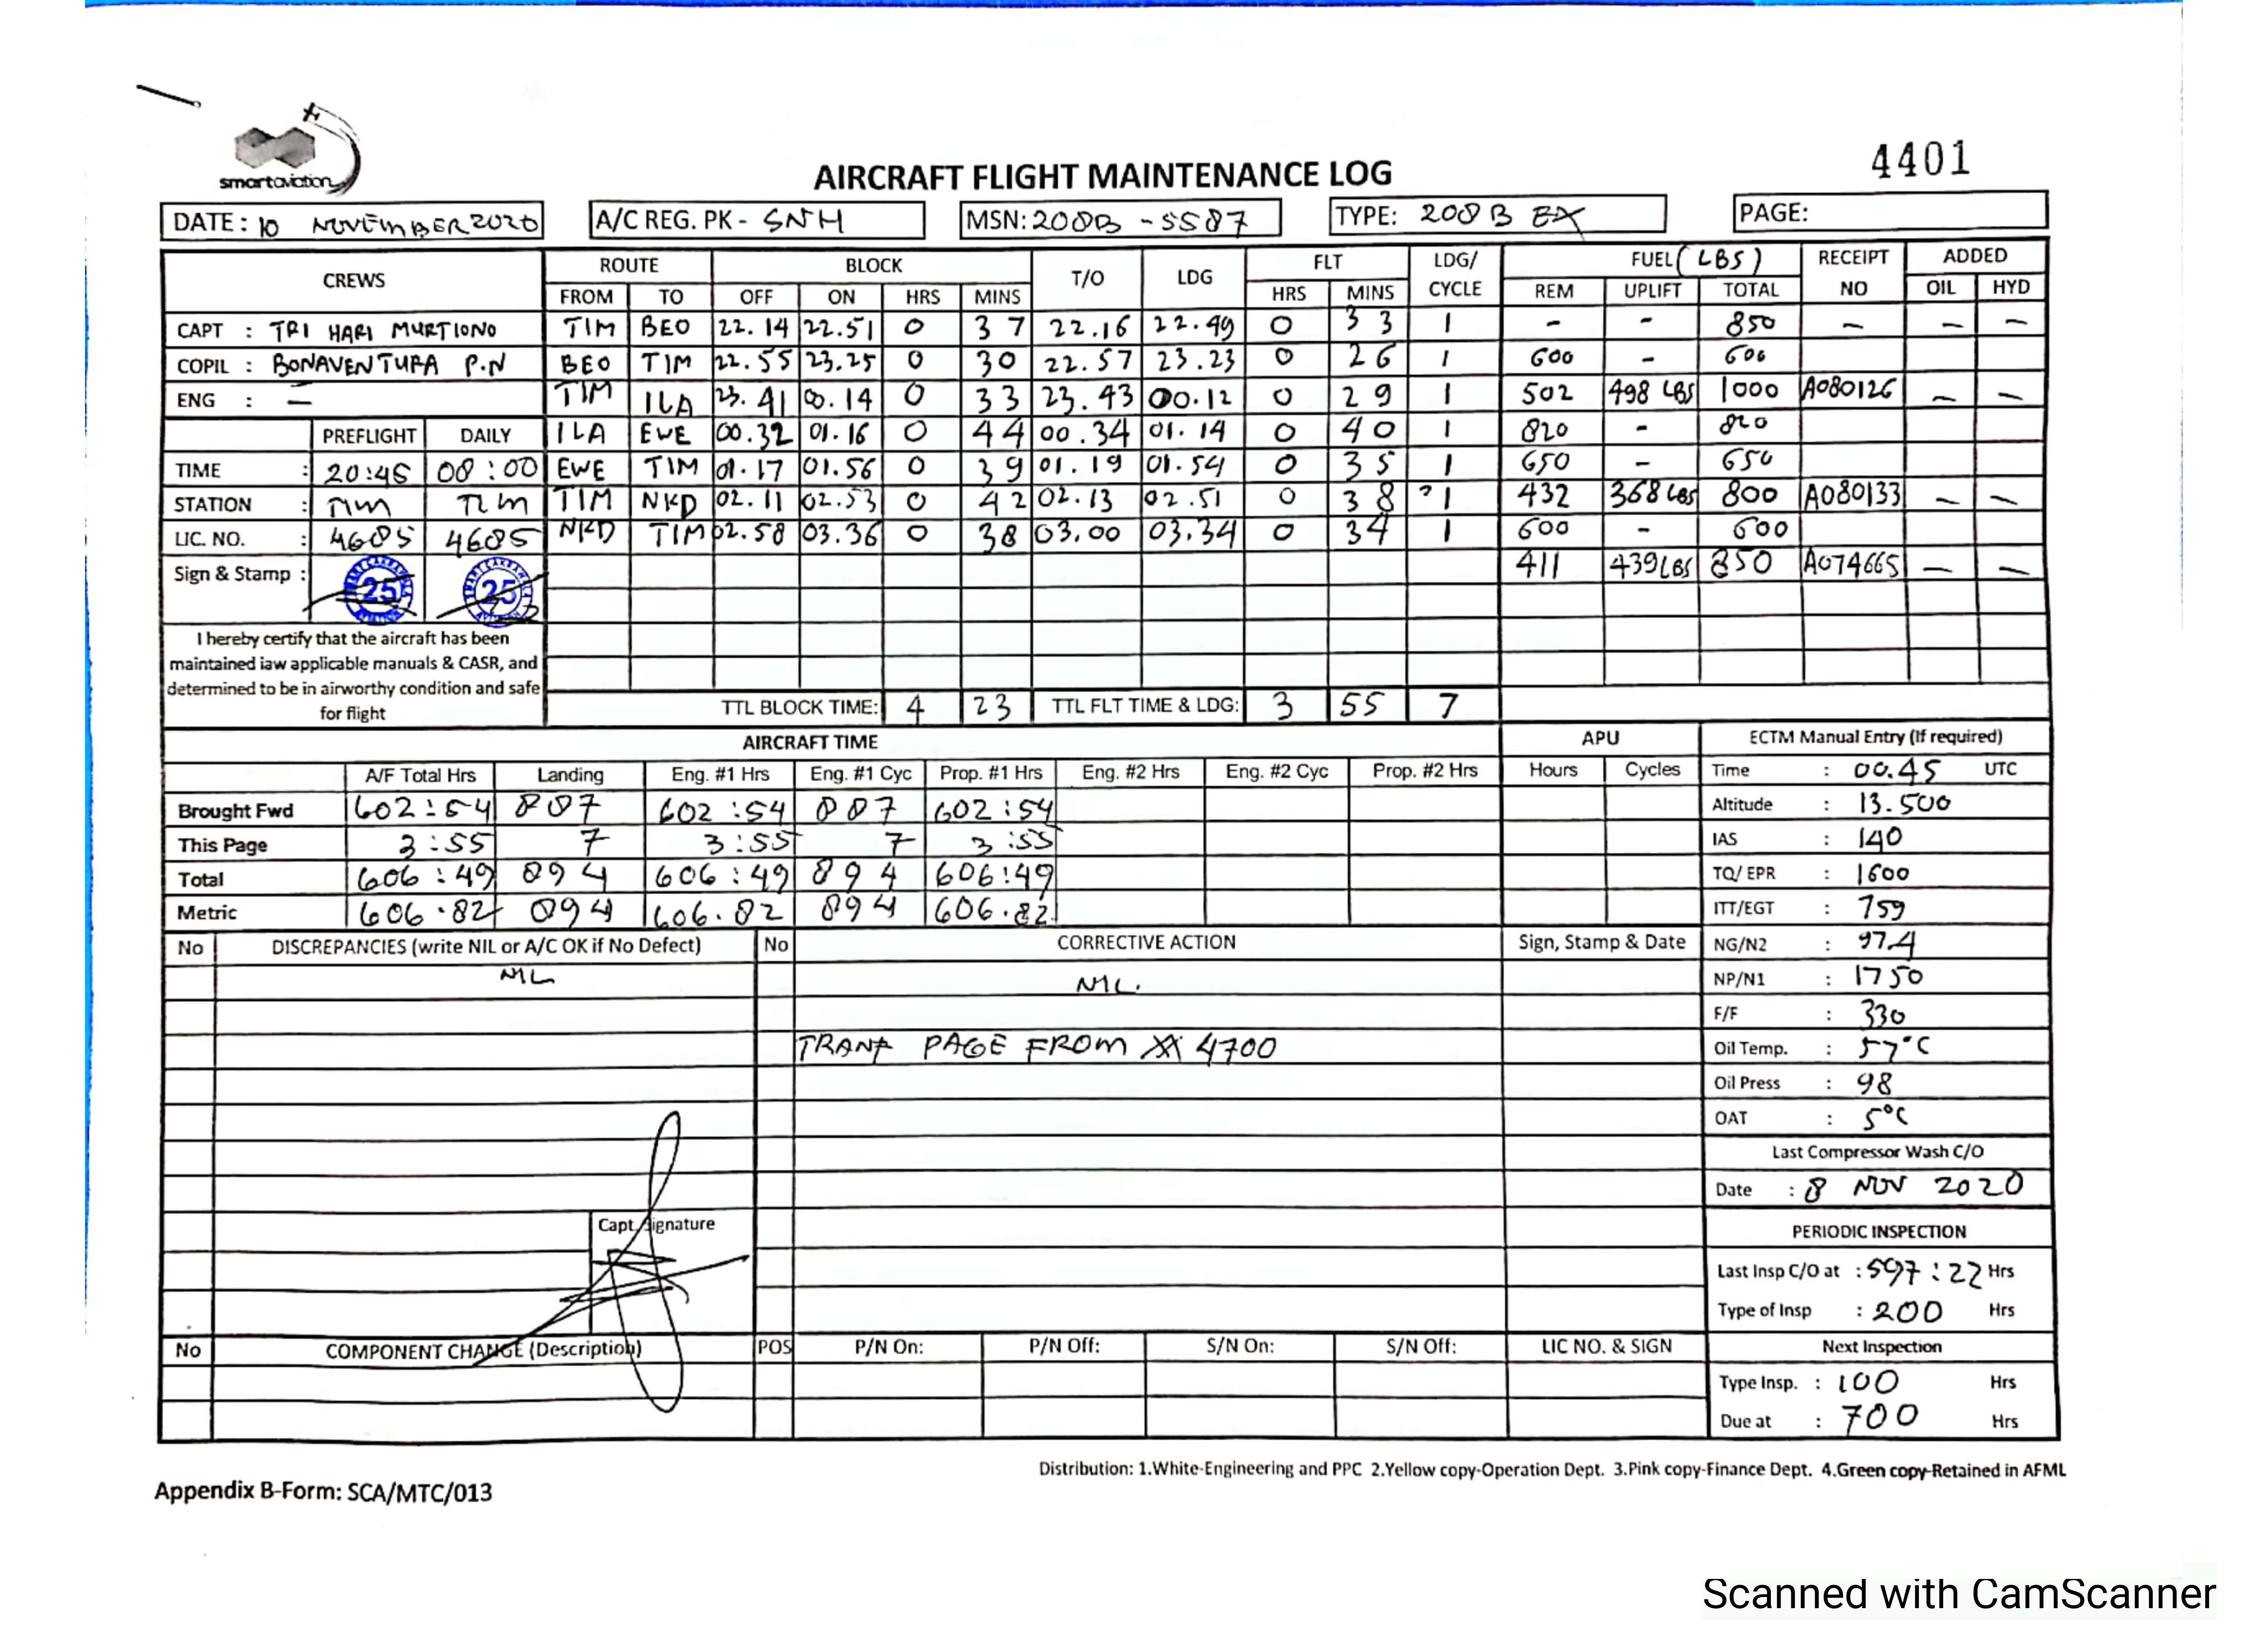 smartaviation
AIRCRAFT FLIGHT MAINTENANCE LOG
4401
DATE: 10 NOVEMBER 2020 A/C REG. PK - SNH MSN: 208B - 5587 TYPE: 208 B EX PAGE:
CREWS ROUTE BLOCK T/O LDG FLT LDG/ CYCLE FUEL (LBS) RECEIPT NO ADDED
FROM TO OFF ON HRS MINS HRS MINS REM UPLIFT TOTAL OIL HYD
CAPT : TRI HARI MURTIONO TIM BEO 22.14 22.51 0 37 22.16 22.49 0 33 1 - - 850 - - -
COPIL : BONAVENTURA P.N BEO TIM 22.55 23.25 0 30 22.57 23.23 0 26 1 600 - 600
ENG : - TIM ILA 23.41 00.14 0 33 23.43 00.12 0 29 1 502 498 LBS 1000 A080126 - -
PREFLIGHT DAILY ILA EWE 00.32 01.16 0 44 00.34 01.14 0 40 1 820 - 820
TIME : 20:45 08:00 EWE TIM 01.17 01.56 0 39 01.19 01.54 0 35 1 650 - 650
STATION : TIM TIM TIM NKD 02.11 02.53 0 42 02.13 02.51 0 38 1 432 368 LBS 800 A080133 - -
LIC. NO. : 4685 4685 NKD TIM 02.58 03.36 0 38 03.00 03.34 0 34 1 600 - 600
Sign & Stamp : 25 25 411 439 LBS 850 A074665 - -
I hereby certify that the aircraft has been
maintained iaw applicable manuals & CASR, and
determined to be in airworthy condition and safe
for flight
TTL BLOCK TIME: 4 23 TTL FLT TIME & LDG: 3 55 7
AIRCRAFT TIME APU ECTM Manual Entry (If required)
A/F Total Hrs Landing Eng. #1 Hrs Eng. #1 Cyc Prop. #1 Hrs Eng. #2 Hrs Eng. #2 Cyc Prop. #2 Hrs Hours Cycles Time : 00.45 UTC
Brought Fwd 602:54 887 602:54 887 602:54 Altitude : 13.500
This Page 3:55 7 3:55 7 3:55 IAS : 140
Total 606:49 894 606:49 894 606:49 TQ/ EPR : 1600
Metric 606.82 894 606.82 894 606.82 ITT/EGT : 759
No DISCREPANCIES (write NIL or A/C OK if No Defect) No CORRECTIVE ACTION Sign, Stamp & Date NG/N2 : 97.4
NIL NIL. NP/N1 : 1750
F/F : 330
TRANF PAGE FROM 4700 Oil Temp. : 57°C
Oil Press : 98
OAT : 5°C
Last Compressor Wash C/O
Date : 8 NOV 2020
Capt. Signature
PERIODIC INSPECTION
Last Insp C/O at : 597:22 Hrs
Type of Insp : 200 Hrs
No COMPONENT CHANGE (Description) POS P/N On: P/N Off: S/N On: S/N Off: LIC NO. & SIGN Next Inspection
Type Insp. : 100 Hrs
Due at : 700 Hrs
Distribution: 1.White-Engineering and PPC 2.Yellow copy-Operation Dept. 3.Pink copy-Finance Dept. 4.Green copy-Retained in AFML
Appendix B-Form: SCA/MTC/013
Scanned with CamScanner